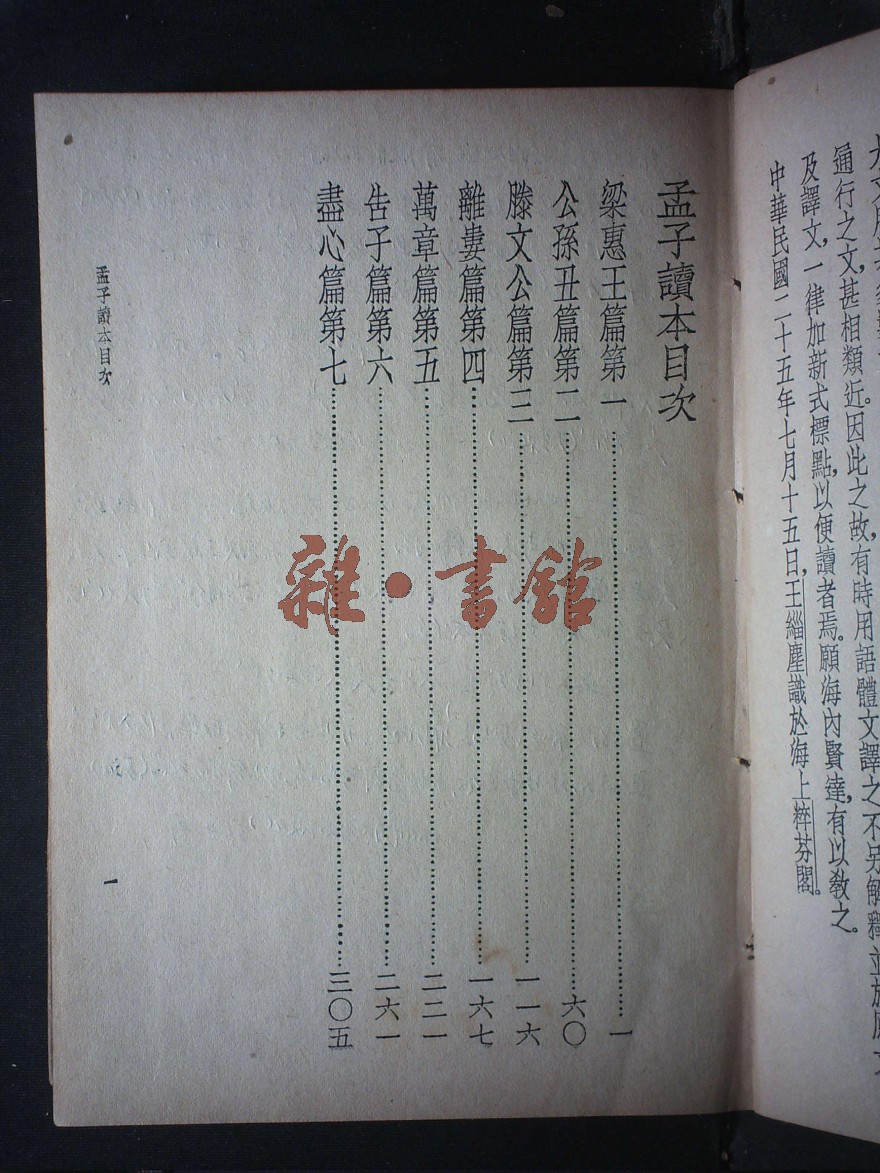 通行之文，甚相類近。因此之故，有時用語體文譯之，不另解釋，並於原文
及譯文，一律加新式標點，以便讀者焉。願海內賢達，有以敎之。
中華民國二十五年七月十五日，王緇塵識於海上粹芬閣。
孟子讀本目次
梁惠王篇第一……一
公孫丑篇第二……六〇
滕文公篇第三……一一六
離婁篇第四……一六七
萬章篇第五……二二一
告子篇第六……二六一
盡心篇第七……三〇五
孟子讀本目次
一
雜·書館